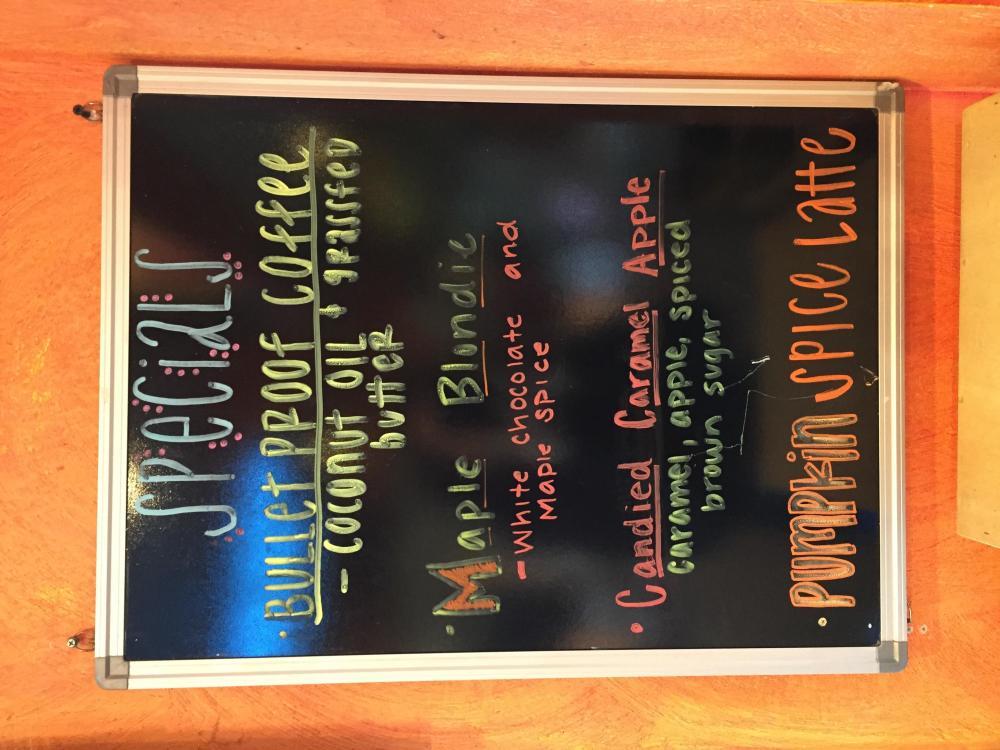 SPECIALS
· BULLET PROOF COFFEE
- COCONUT OIL + GRASSFED
BUTTER
· Maple Blondie
- White chocolate and
Maple spice
· Candied Caramel Apple
caramel, apple, spiced
brown sugar
· PUMPKIN SPICE LATTE